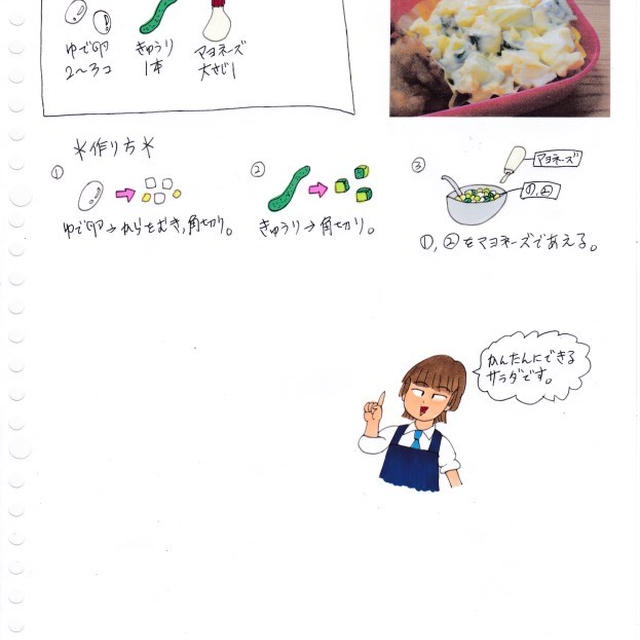 ゆで卵
2〜3コ
きゅうり
1本
マヨネーズ
大さじ1
*作り方*
①
ゆで卵→からをむき,角切り。
②
きゅうり→角切り。
③
マヨネーズ
①,②
①,②をマヨネーズであえる。
かんたんにできる
サラダです。